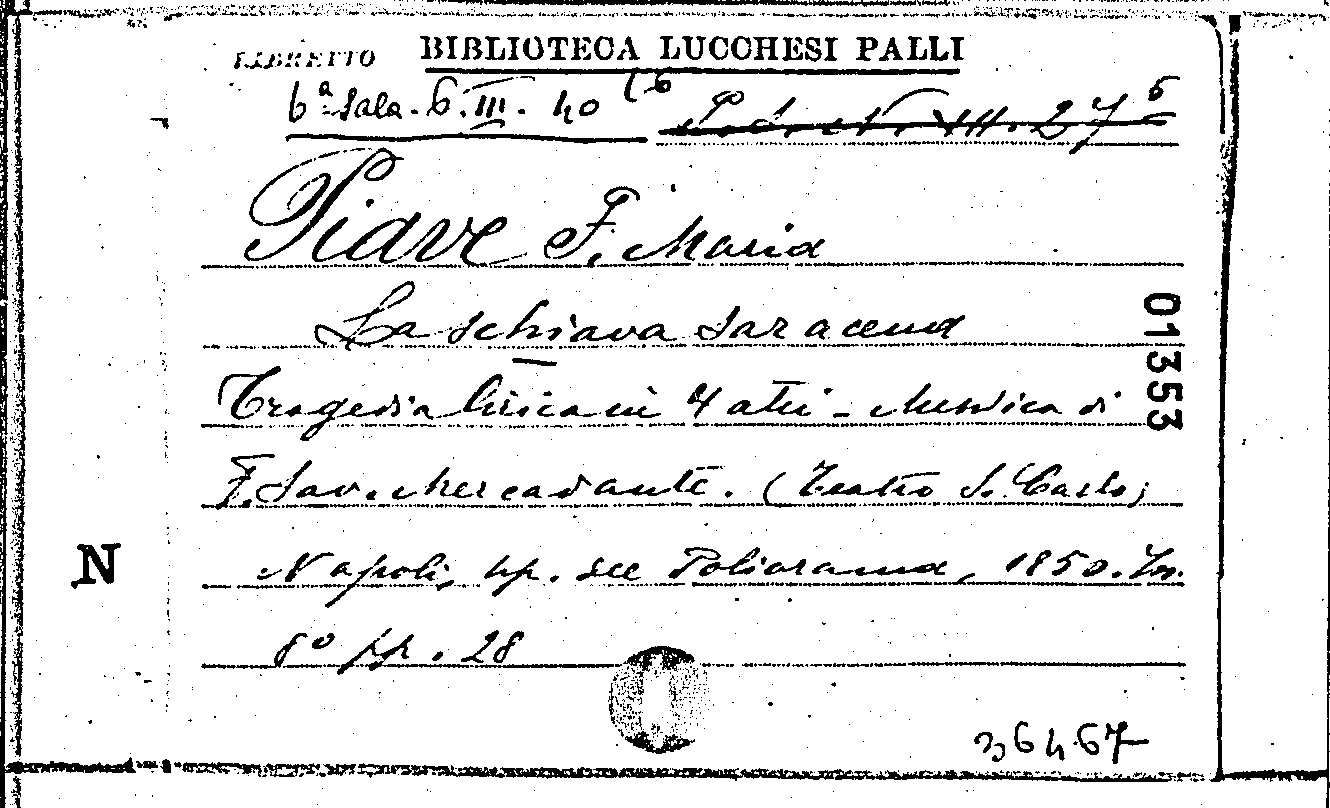 LIBRETTO BIBLIOTECA LUCCHESI PALLI
6ª Sala. 6. III. 40 (6
27 6
Piave F. Maria
La schiava saracena
Tragedia lirica in 4 atti - Musica di
F. Sav. Mercadante. (Teatro S. Carlo)
Napoli, tip. del Poliorama, 1850. In
8º pp. 28
01353
N
36467